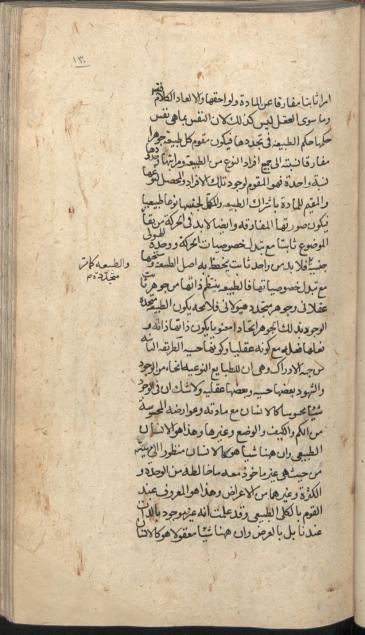 ١٣٠
امرا ثابتا مفارقا عن المادة ولواحقها والا لعاد الكلام فيه
وما سوى العقل ليس كذلك لان النفس بما هي نفس
حكمها حكم الطبيعة في تجددها فيكون مقوم كل طبيعة جوهرا
مفارقا نسبته الى جميع افراد النوع من الطبيعة ومراتبها
نسبة واحدة فهو المقوم لوجود تلك الافراد والمحصل لنوعها
والمقيم للمادة باشراك الطبيعة والمكمل لجنسها نوعا طبيعيا
فيكون صورتها المفارقة وايضا لابد في الحركة من بقاء
الموضوع ثابتا مع تبدل خصوصيات الحركة ووحدة
جنسية فلابد من واحد ثابت ينحفظ به اصل الطبيعة
مع تبدل خصوصياتها فالطبيعة ينتظم ذاتها من جوهر ثابت
عقلاني وجوهر متجدد هيولاني فلا محه يكون الطبيعة متحدة
الوجود بذلك الجوهر اتحادا معنويا يكون ذاتها ذاته و
فعلها فعله مع كونه عقليا وكونها حسية الطريقة الثالثة
من جهة الادراك وهي ان للطبايع النوعية انحاء من الوجود
والشهود بعضها حسية وبعضها عقلية ولا شك ان في الوجود
شيئا محسوسا كالانسان مع مادته وعوارضه المحسوسة
من الكم والكيف والوضع وغيرها وهذا هو الانسان
الطبيعي وان ههنا شيئا هو كالانسان منظورا الى
من حيث هي غير ماخوذ معه ما خالطه من الوحدة و
الكثرة وغيرها من الاعراض وهذا هو المعروف عند
القوم بالكلي الطبيعي وقد علمت انه غير موجود بالذات
عندنا بل بالعرض وان ههنا شيئا معقولا هو كالانسان
والطبيعة كما مر
متجددة م